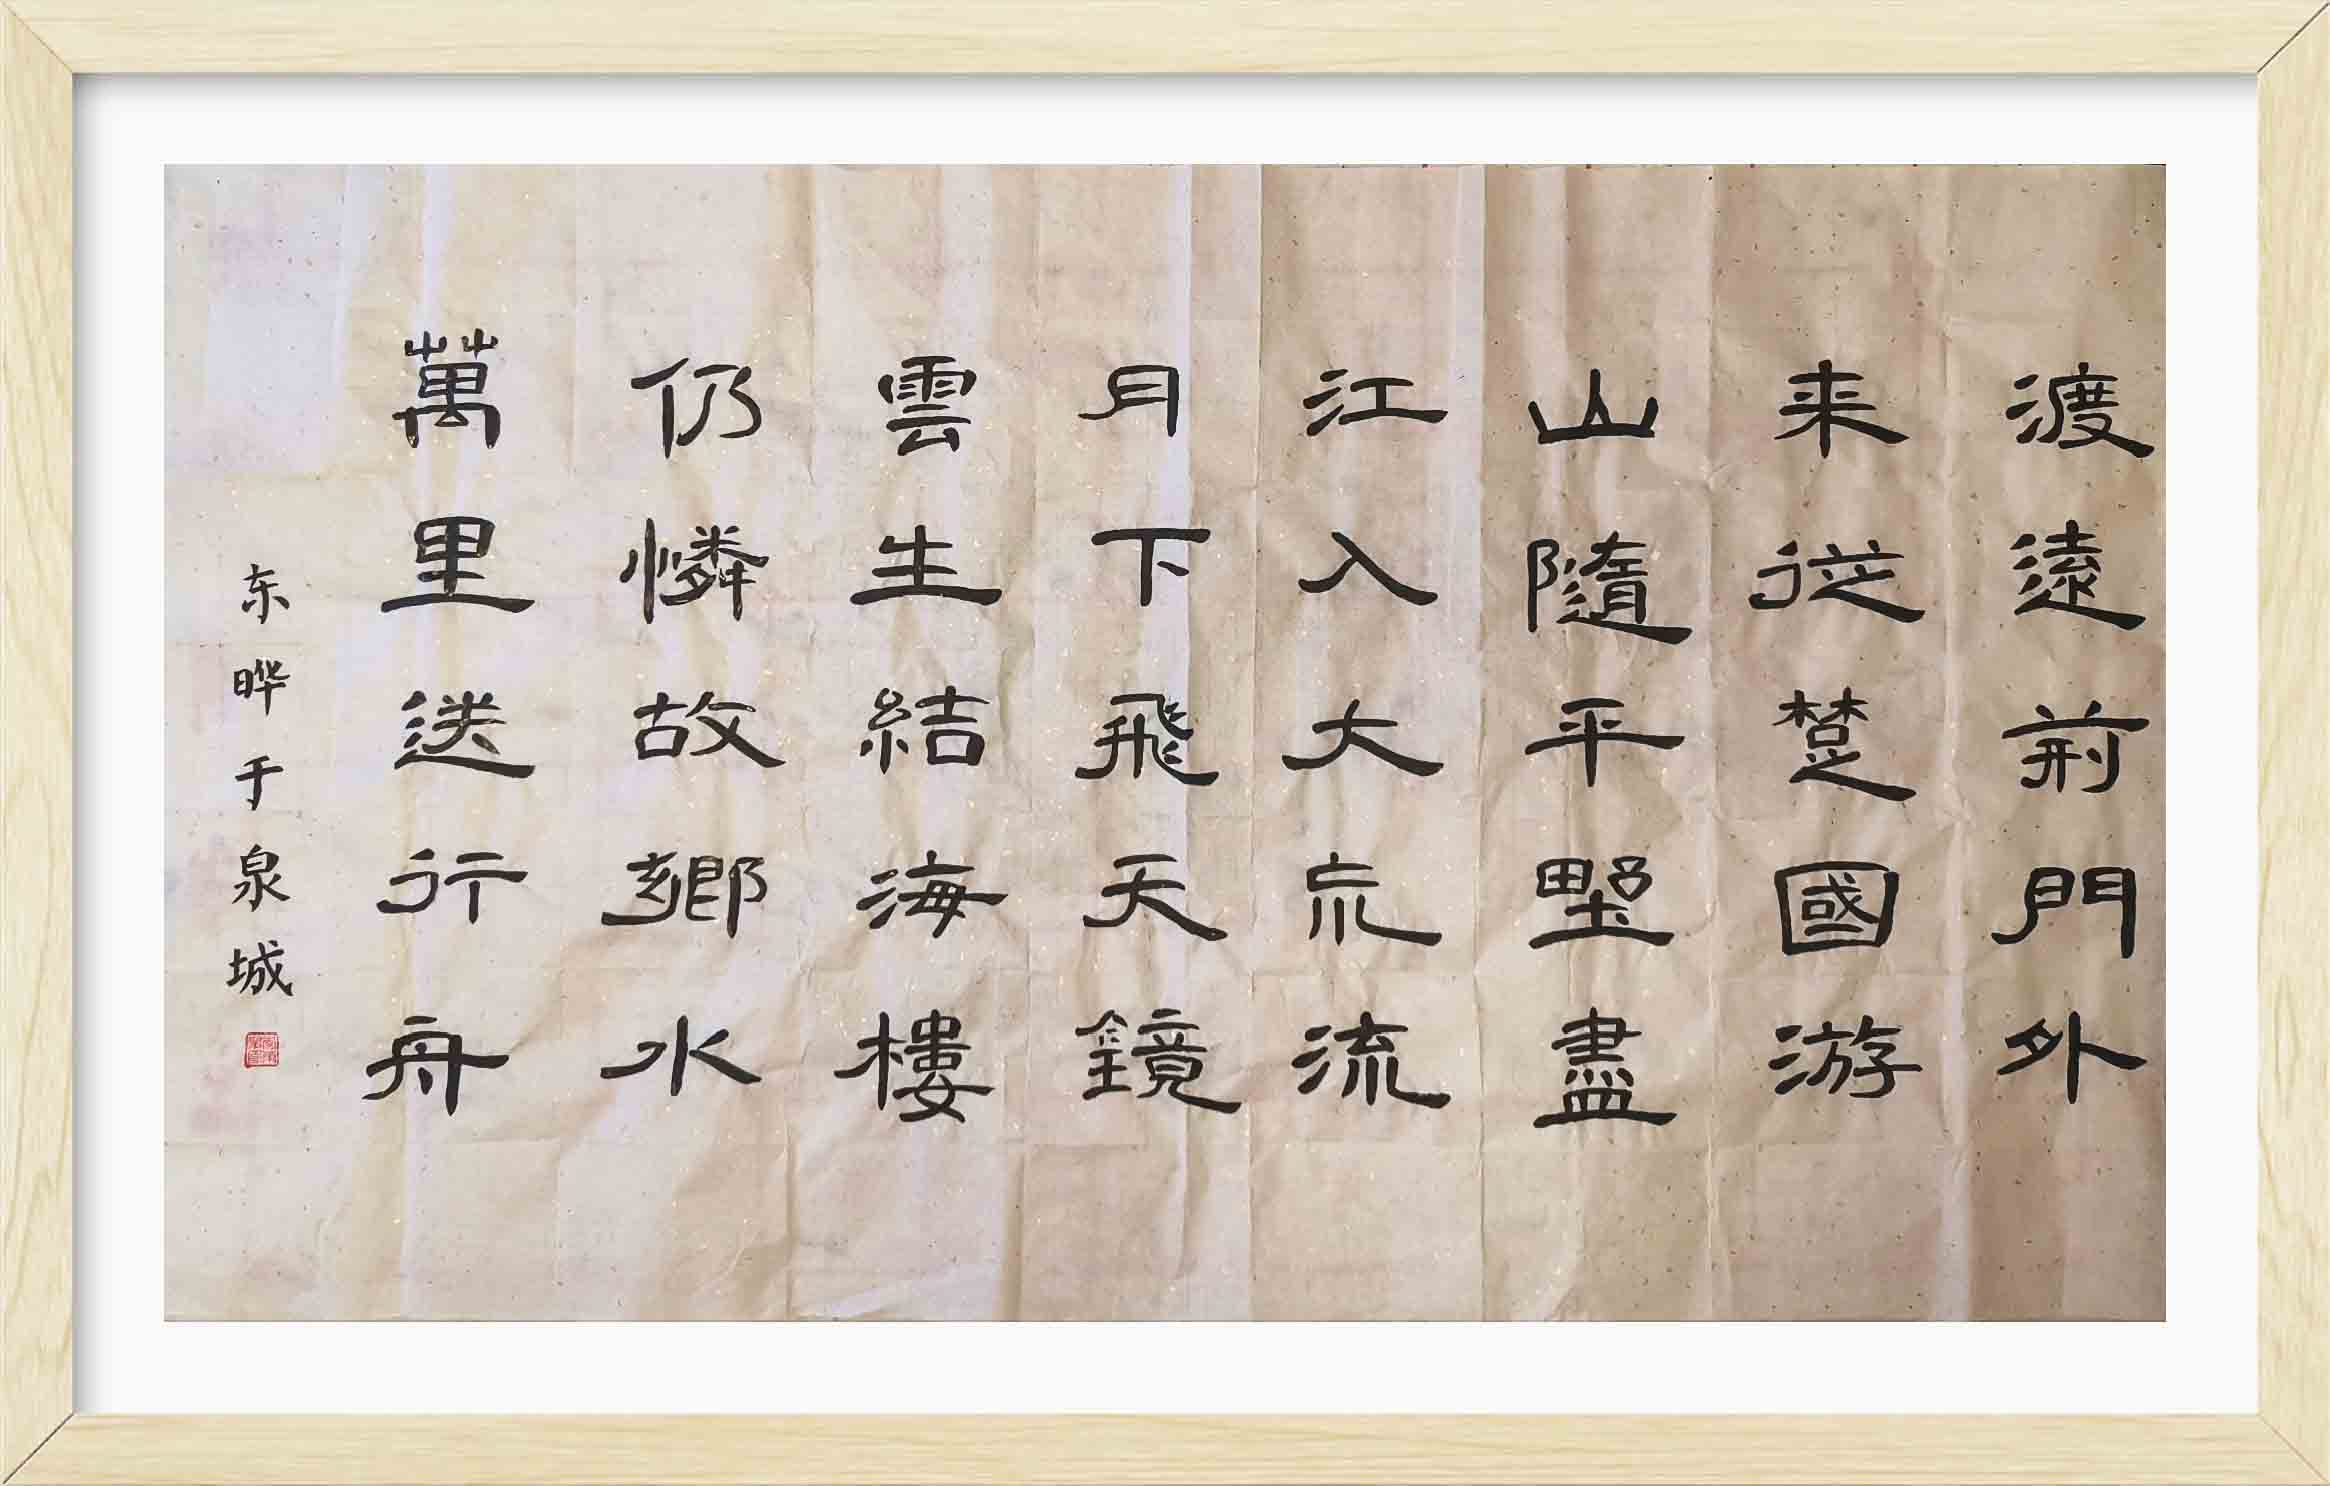 渡遠荊門外
来従楚國游
山隨平墅盡
江入大荒流
月下飛天鏡
雲生結海樓
仍憐故鄉水
萬里送行舟
东晔于泉城